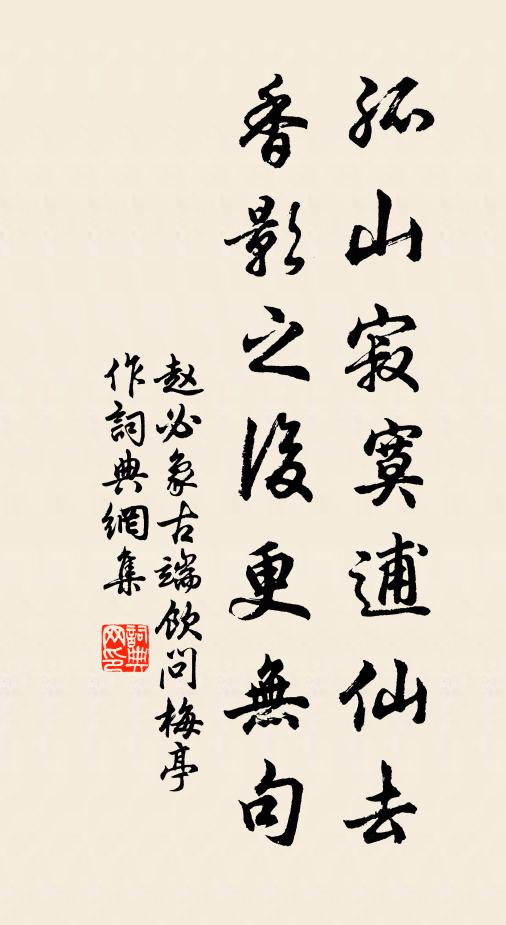 孤山寂寞逋仙去
香影之後更無句
赵必象古端飲问梅亭
作詞典網集
詞典网印